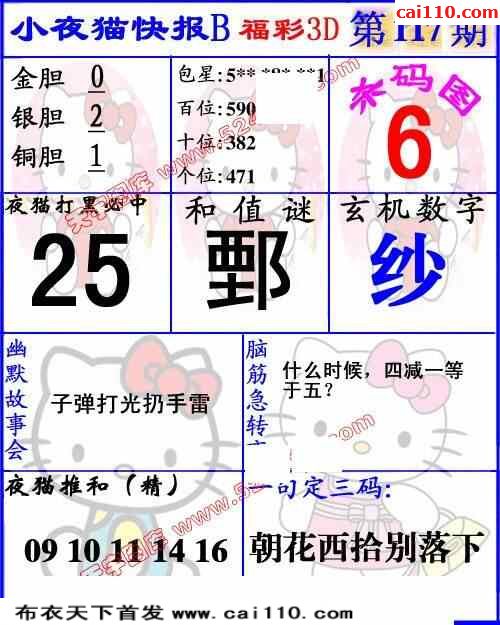 cai110.com
小夜猫快报B 福彩3D 第117期
金胆 0
银胆 2
铜胆 1
包星:5** *9* **1
百位:590
十位:382
个位:471
码图
6
夜猫打黑必中
25
和值谜
鄄
玄机数字
纱
幽默故事会
子弹打光扔手雷
脑筋急转
什么时候，四减一等
于五？
夜猫推和（精）
09 10 11 14 16
一句定三码:
朝花西拾别落下
天字图库 www.52
.com
布衣天下首发 www.cai110.com